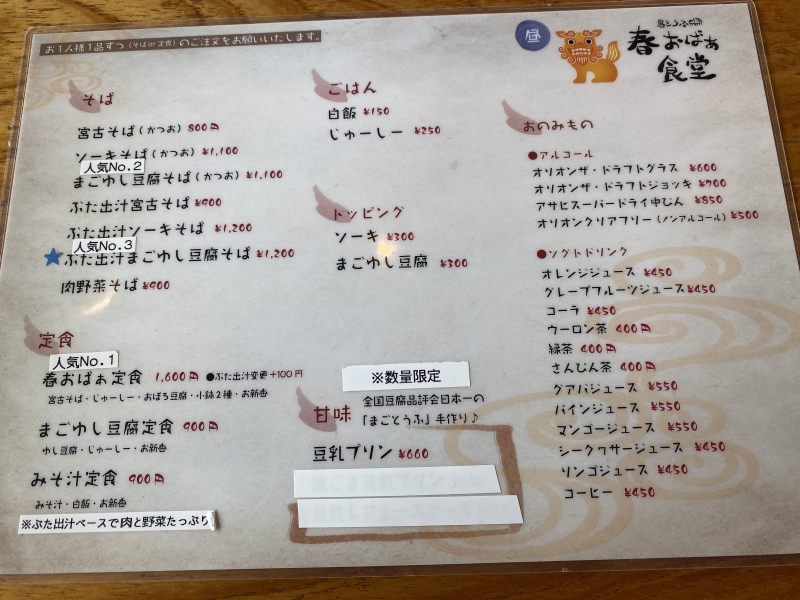 お1人様1品ずつ(そばor定食)のご注文をお願いいたします。
昼
島とうふ
春おばぁ
食堂
そば
宮古そば(かつお) 800円
ソーキそば(かつお) ¥1,100
人気No.2
まごゆし豆腐そば(かつお) ¥1,100
ぶた出汁宮古そば ¥900
ぶた出汁ソーキそば ¥1,200
人気No.3
ぶた出汁まごゆし豆腐そば ¥1,200
肉野菜そば ¥900
定食
人気No.1
春おばぁ定食 1,600円 ●ぶた出汁変更+100円
宮古そば・じゅーしー・おぼろ豆腐・小鉢2種・お新香
まごゆし豆腐定食 900円
ゆし豆腐・じゅーしー・お新香
みそ汁定食 900円
みそ汁・白飯・お新香
※ぶた出汁ベースで肉と野菜たっぷり
ごはん
白飯 ¥150
じゅーしー ¥250
トッピング
ソーキ ¥300
まごゆし豆腐 ¥300
※数量限定
甘味
全国豆腐品評会日本一の
「まごとうふ」手作り♪
豆乳プリン ¥660
おのみもの
●アルコール
オリオンザ・ドラフトグラス ¥600
オリオンザ・ドラフトジョッキ ¥700
アサヒスーパードライ中びん ¥850
オリオンクリアフリー(ノンアルコール) ¥500
●ソフトドリンク
オレンジジュース ¥450
グレープフルーツジュース ¥450
コーラ ¥450
ウーロン茶 400円
緑茶 400円
さんぴん茶 400円
グアバジュース ¥550
パインジュース ¥550
マンゴージュース ¥550
シークヮサージュース ¥450
リンゴジュース ¥450
コーヒー ¥450